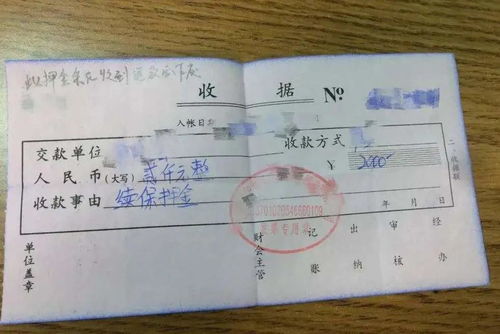 此押金条凡收到退款后作废
收 据 №
入帐日期
交款单位 收款方式
人民币(大写) 贰仟元整 ¥ 2000
收款事由 续保押金
年 月 日
单位盖章 财会主管 记账 出纳 审核 经办